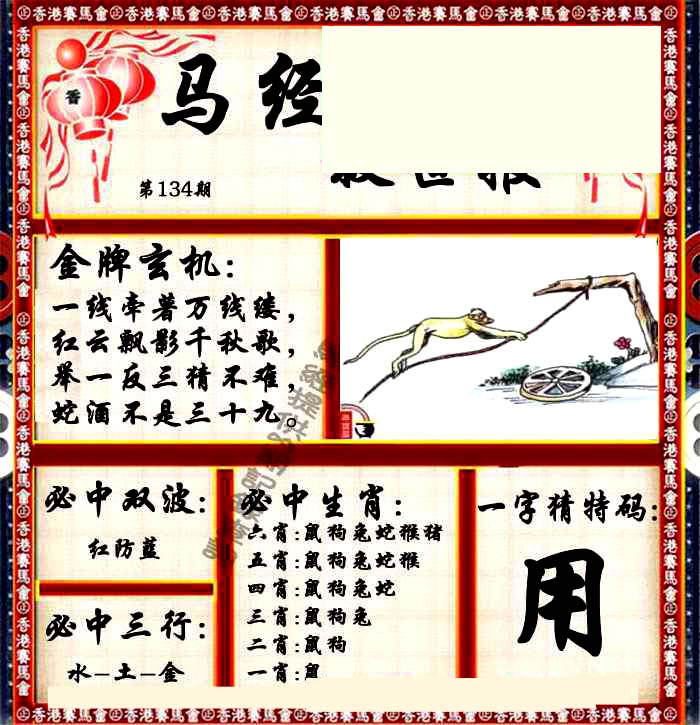 香港賽馬會
香
马经
第134期
金牌玄机：
一线牵着万线缕，
红云飘影千秋歌，
举一反三猜不难，
蛇酒不是三十九。
必中双波：
红防蓝
必中三行：
水-土-金
必中生肖：
六肖:鼠狗兔蛇猴猪
五肖:鼠狗兔蛇猴
四肖:鼠狗兔蛇
三肖:鼠狗兔
二肖:鼠狗
一肖:鼠
一字猜特码:
用